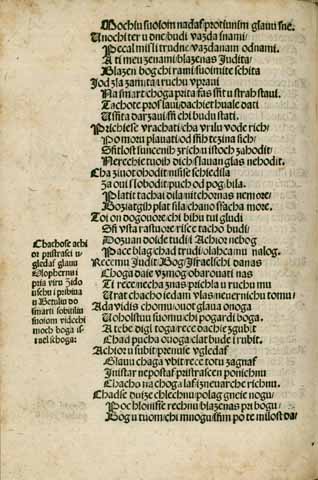 Mochiu suoiom nadas protiunim glauu sne.
Unochi ter u dne/ budi vazda snami/
Pecal misli trudne/ vazdanam odnami.
A ti meu zenami/ blazenas Judita/
Blazen bog chi rami suoimite schita
Iod zla zamita i ruchu vprani
Na smart choga prita sas sfit u strah staui.
Tachote proslaui/ dachiet huale dati
Usfita darzaui sfi chi budu stati.
Prichiese vrachati cha vrilu vode rich/
Po moru plauati od sfih tezina sich/
Sfitlost suncenih zrich u istoch zahodit/
Nerechie tuoih dich slauan glas nehodit.
Cha ziuot ohodit nisise schiedila
Za oui slobodit puch od pogibila.
Platit tachai dila nit chornas nemore/
Boziatgih plat sila chano sfacha more.
Toi on dogouore chi bihu tui gludi
Sfi vsta rastuore risce tacho budi/
Dozuan doide tudi i Achior nchog
Poace blag chad trudi/ olahceanu nalog.
Recemu Judit Bog/ Jsraelschi danas
Choga daie vzmog obarouati nas
Ti rece/ nechia znas/ prichla u ruchu mu
Urat chacho iedam vlas/ neuernichu tomu/
Ada vidis chomu/ ouo t glaua onoga
Uoholstuu suomu chi pogardi boga.
A tebe digi toga/ rece dachie zgubit
Chad pucha onoga/ clat bude i rubit.
Achior u subit/ prenuie vgledas
Glauu chaga vbit/ rece totu zagnas
Jnistar nepostas pristrascen ponichnu
Chacho nachoga las iznevarche richnu.
Chadse duize chlechnu/ polag gneie nogu/
Pochlonisse rechnu/ blazenas pri bogu/
Bog u tuom/ chi mnogu/ sfim po te milost da/
Chachose achi
or pristrasci u
gledas glauu
Olopherna i
pria viru zido
uschu i pribiua
u Betuliu do
smarti sobitiliu
suoiom vidcehi
moch boga is
raelschoga: